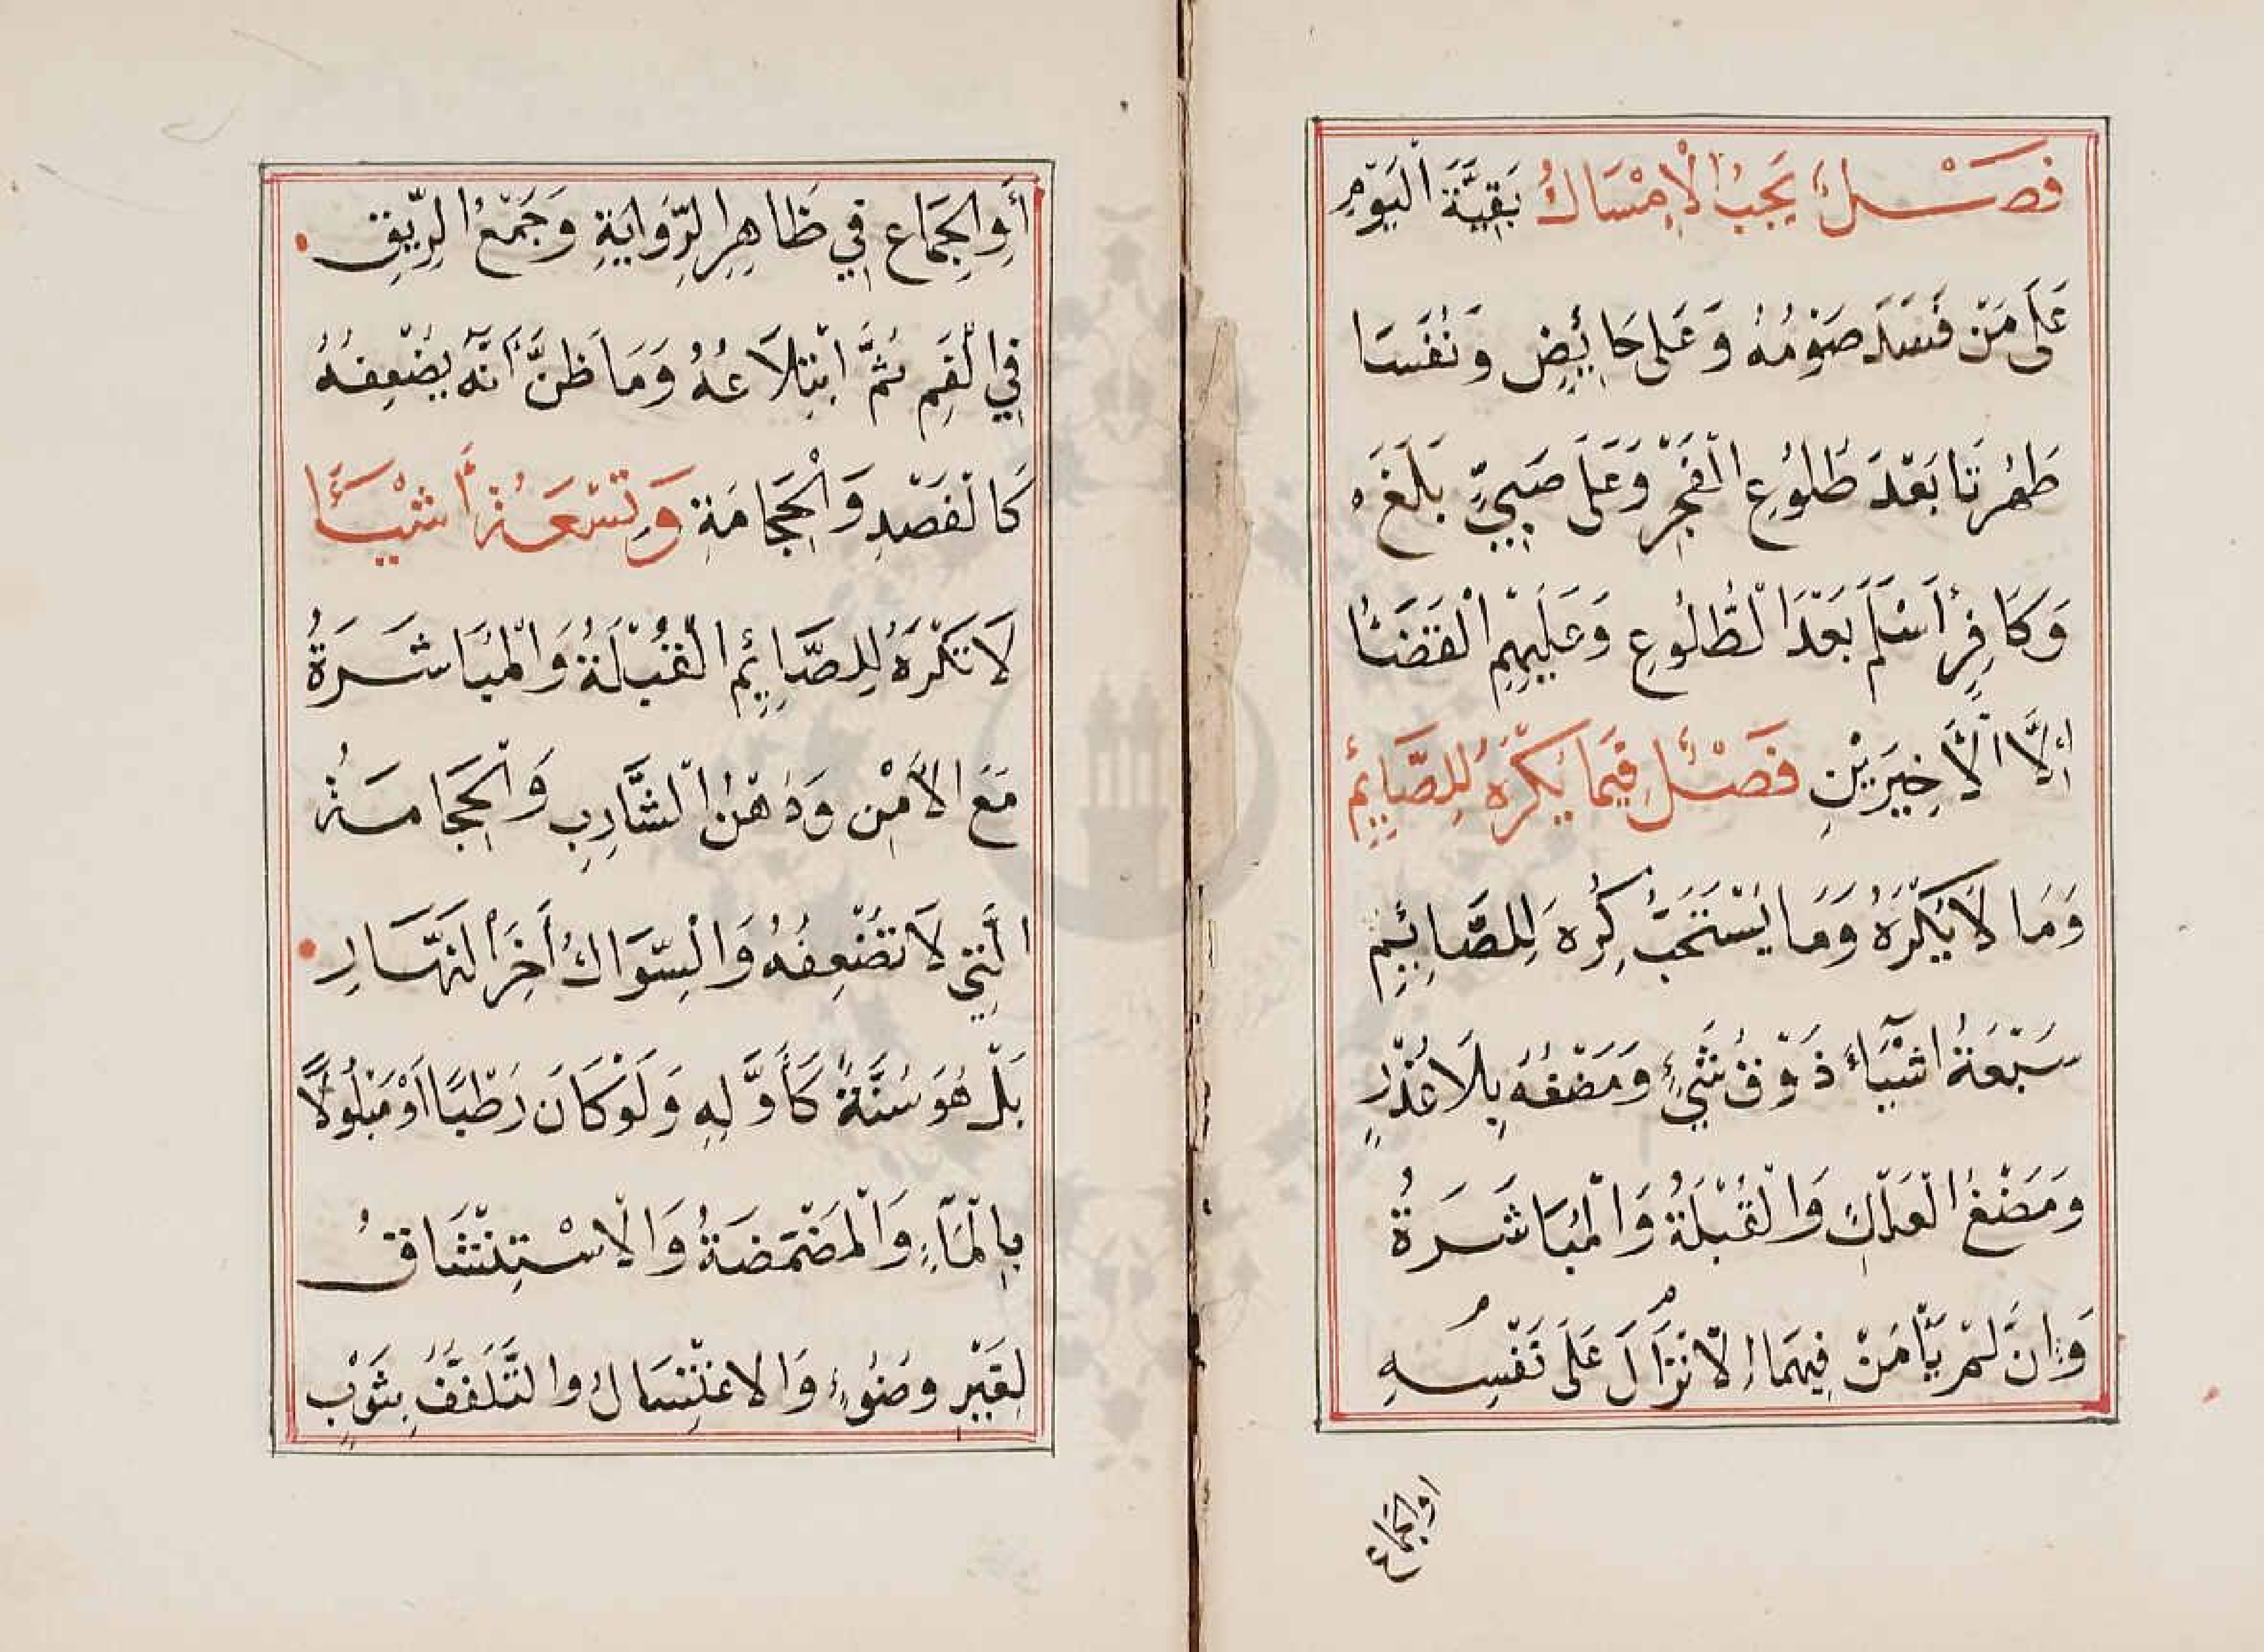 فَصْلٌ يَجِبُ الْاِمْسَاكُ بَقِيَّةَ الْيَوْمِ
عَلَى مَنْ فَسَدَ صَوْمُهُ وَعَلَى حَائِضٍ وَنُفَسَا
طَهُرَتَا بَعْدَ طُلُوعِ الْفَجْرِ وَعَلَى صَبِيٍّ بَلَغَ ه
وَكَافِرٍ اَسْلَمَ بَعْدَ الْطُّلُوعِ وَعَلَيْهِمِ الْقَضَا
اِلَّا الْاَخِيرَيْنِ فَصْلٌ فِيمَا يُكْرَهُ لِلصَّائِمِ
وَمَا لَا يُكْرَهُ وَمَا يُسْتَحَبُّ كُرِهَ لِلصَّائِمِ
سَبْعَةُ اَشْيَآءَ ذَوْقُ شَيْءٍ وَمَضْغُهُ بِلَا عُذْرٍ
وَمَضْغُ الْعَلْكِ وَالْقُبْلَةُ وَالْمُبَاشَرَةُ
وَاِنْ لَمْ يَأْمَنْ فِيهِمَا الْاِنْزَالَ عَلَى نَفْسِهِ
اوالجماع
أَوِ الْجِمَاعِ فِي ظَاهِرِ الرِّوَايَةِ وَجَمْعُ الرِّيقِ
فِي الْفَمِ ثُمَّ ابْتِلَاعُهُ وَمَا ظَنَّ أَنَّهُ يُضْعِفُهُ
كَالْفَصْدِ وَالْحِجَامَةِ وَتِسْعَةُ أَشْيَآءَ
لَا تُكْرَهُ لِلصَّائِمِ الْقُبْلَةُ وَالْمُبَاشَرَةُ
مَعَ الْاَمْنِ وَدُهْنُ الْشَّارِبِ وَالْحِجَامَةُ
الَّتِي لَا تُضْعِفُهُ وَالْسِّوَاكُ أَخِرَ النَّهَارِ
بَلْ هُوَ سُنَّةٌ كَأَوَّلِهِ وَلَوْ كَانَ رَطْبًا اَوْ مَبْلُولًا
بِالْمَآءِ وَالْمَضْمَضَةُ وَالْاسْتِنْشَاقُ
لِغَيْرِ وضُوءٍ وَالاغْتِسَالُ والتَّلَفُّفُ بِثَوْبٍ